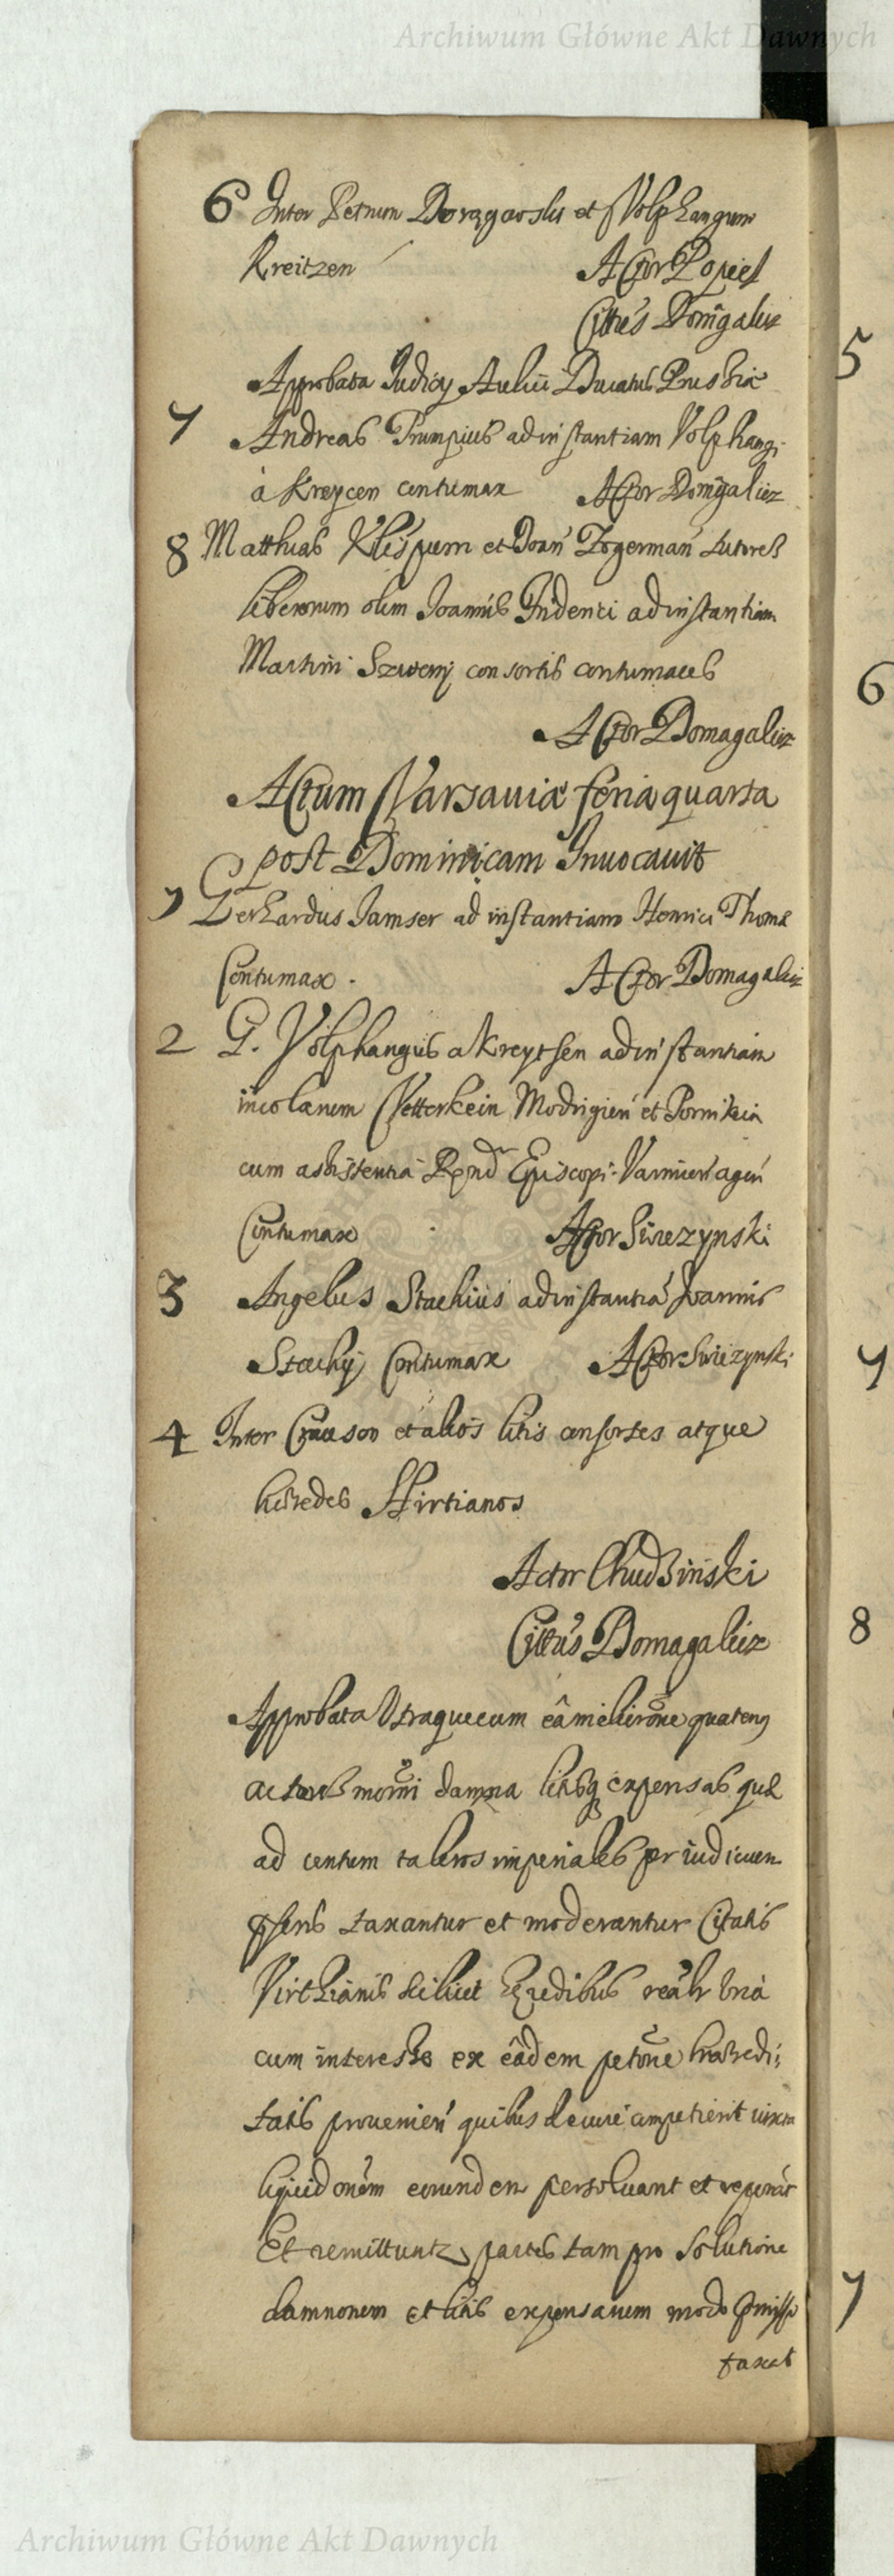 Archiwum Główne Akt Dawnych
6 Inter Petrum Doręgowski et Volphangum
Kreitzen Actor Popiel
Cittus Domgalicz
Approbata Iudicij Aulici Ducatus Prussiæ
7 Andreas Prumpius ad instantiam Volphangi
à Kreycen contumax Actor Domgalicz
8 Matthias Klispum et Joan Zogerman tutores
liberorum olim Joannis Indenti ad instantiam
Martini Szweny consortis contumaces
Actor Domagalicz
Actum Varsaviæ feria quarta
post Dominicam Invocavit
Gerhardus Jamser ad instantiam Henrici Thomæ
Contumax. Actor Domagalicz
2 G. Volphangus a Kreytsen ad instantiam
incolarum Vetterkein Modrigien et Pornikein
cum assistentia Rnd Episcopi Varmien agen
Contumax Actor Swiezynski
3 Angelus Stachius ad instantia Joannis
Stachij Contumax Actor Swiezynski
4 Inter Crauson et alios litis consortes atque
hæredes Virtianos
Actor Chudzinski
Cittus Domagalicz
Approbata Utraque cum eâ meliorõne quatenus
actores momi damna litisq expensas quæ
ad centum taleros imperiales per iudicium
pñens taxantur et moderantur Citatis
Virthianis scilicet hæredibus realr una
cum interesse ex eâdem petõne hæredi
tatis provenien quibus de iure competierit iuxta
liquidonem eorundem persolvant et reponãt
Et remittuntur partes tam pro solutione
damnorum et litis expensarum modo pmisso
taxat
5
6
7
8
7
Archiwum Główne Akt Dawnych